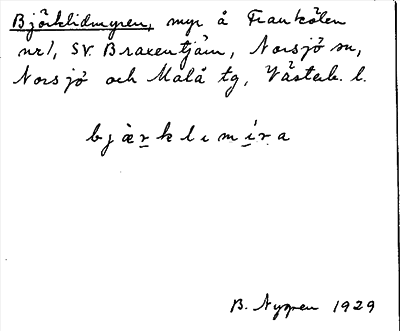 Björklidmyren, myr å Frankölen
nr 1, SV. Braxentjärn, Norsjö sn,
Norsjö och Malå tg, Västerb. l.
bjæ̀rklimíra
B. Nygren 1929